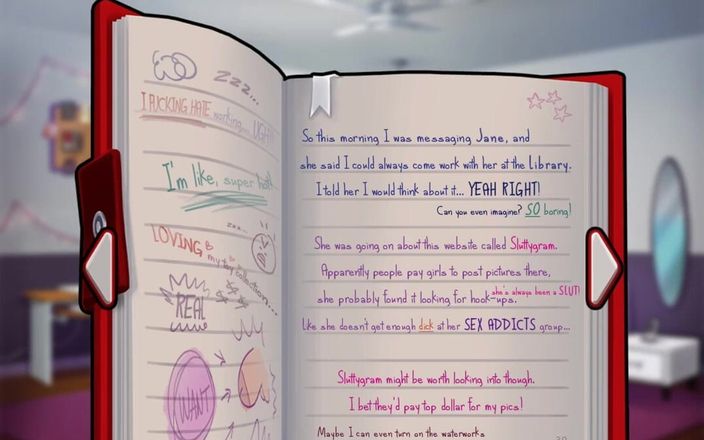 zzz...
I FUCKING HATE working.... UGH!
I'm like, super hot!
zzz...
LOVING my toy collection...
REAL
WANT
So this morning I was messaging Jane, and
she said I could always come work with her at the Library.
I told her I would think about it... YEAH RIGHT!
Can you even imagine? SO boring!
She was going on about this website called Sluttygram.
Apparently people pay girls to post pictures there,
she probably found it looking for hook-ups. she's always been a SLUT!
Like she doesn't get enough dick at her SEX ADDICTS group...
Sluttygram might be worth looking into though.
I bet they'd pay top dollar for my pics!
Maybe I can even turn on the waterworks